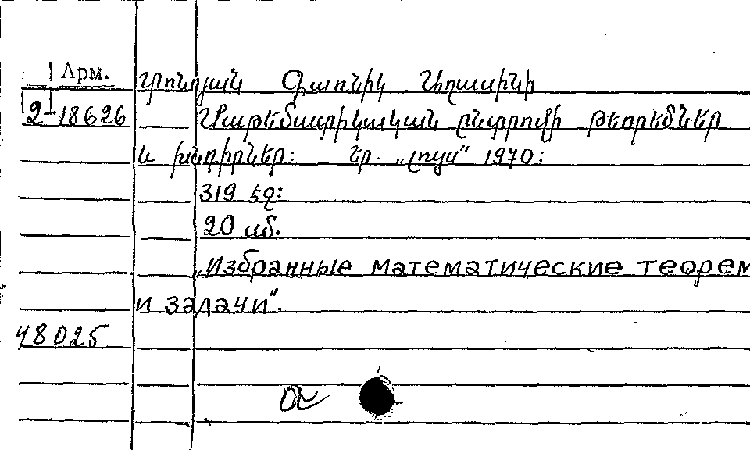 Арм.
2-18626
Տոնոյան Գառնիկ Աղասինի
Մաթեմատիկական ընտրովի թեորեմներ
և խնդիրներ: Եր. „Լույս“ 1970:
319 էջ:
20 սմ.
„Избранные математические теорем
и задачи“.
48025